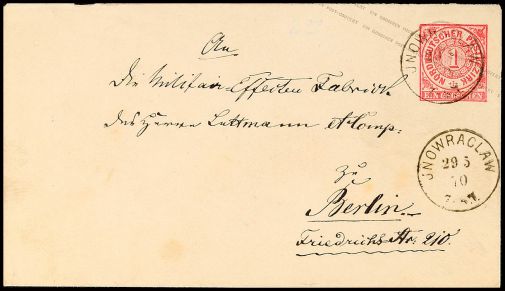 NORDDEUTSCHER POSTBEZIRK
1
EIN GROSCHEN
An
die Militair Effecten Fabrick
des Herrn Luttmann & Comp:
zu
Berlin.
Friedrichs Str. 210.
JNOWRACLAW
29 5
70
7-8 N.